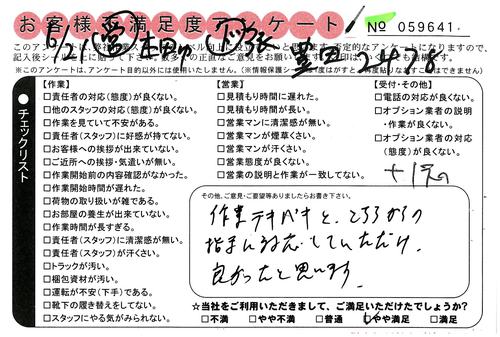 お客様満足度アンケート
№ 059641
【作業】
□責任者の対応(態度)が良くない。
□他のスタッフの対応(態度)が良くない。
□作業を見ていて不安がある。
□責任者(スタッフ)に好感が持てない。
□お客様への挨拶が出来ていない。
□ご近所への挨拶・気遣いが無い。
□作業開始前の内容確認がなかった。
□作業開始時間が遅れた。
□荷物の取り扱いが雑である。
□お部屋の養生が出来ていない。
□作業時間が長すぎる。
□責任者(スタッフ)に清潔感が無い。
□責任者(スタッフ)が汗くさい。
□トラックが汚い。
□梱包資材が汚い。
□運転が不安(下手)である。
□靴下の履き替えをしてない。
□スタッフにやる気がみられない。
【営業】
□見積もり時間に遅れた。
□見積もり時間が長い。
□営業マンに清潔感が無い。
□営業マンが煙草くさい。
□営業マンが汗くさい。
□営業態度が良くない。
□営業の説明と作業が一致してない。
【受付・その他】
□電話の対応が良くない。
□オプション業者の説明
・作業が良くない。
□オプション業者の対応
(態度)が良くない。
●チェックリスト
その他、ご意見・ご要望等ありましたらお書き下さい。
作業テキパキと、こちらからの
指示に対応していただけ、
良かったと思います。
☆当社をご利用いただきまして、ご満足いただけたでしょうか?
□不満 □やや不満 □普通 □やや満足 □満足